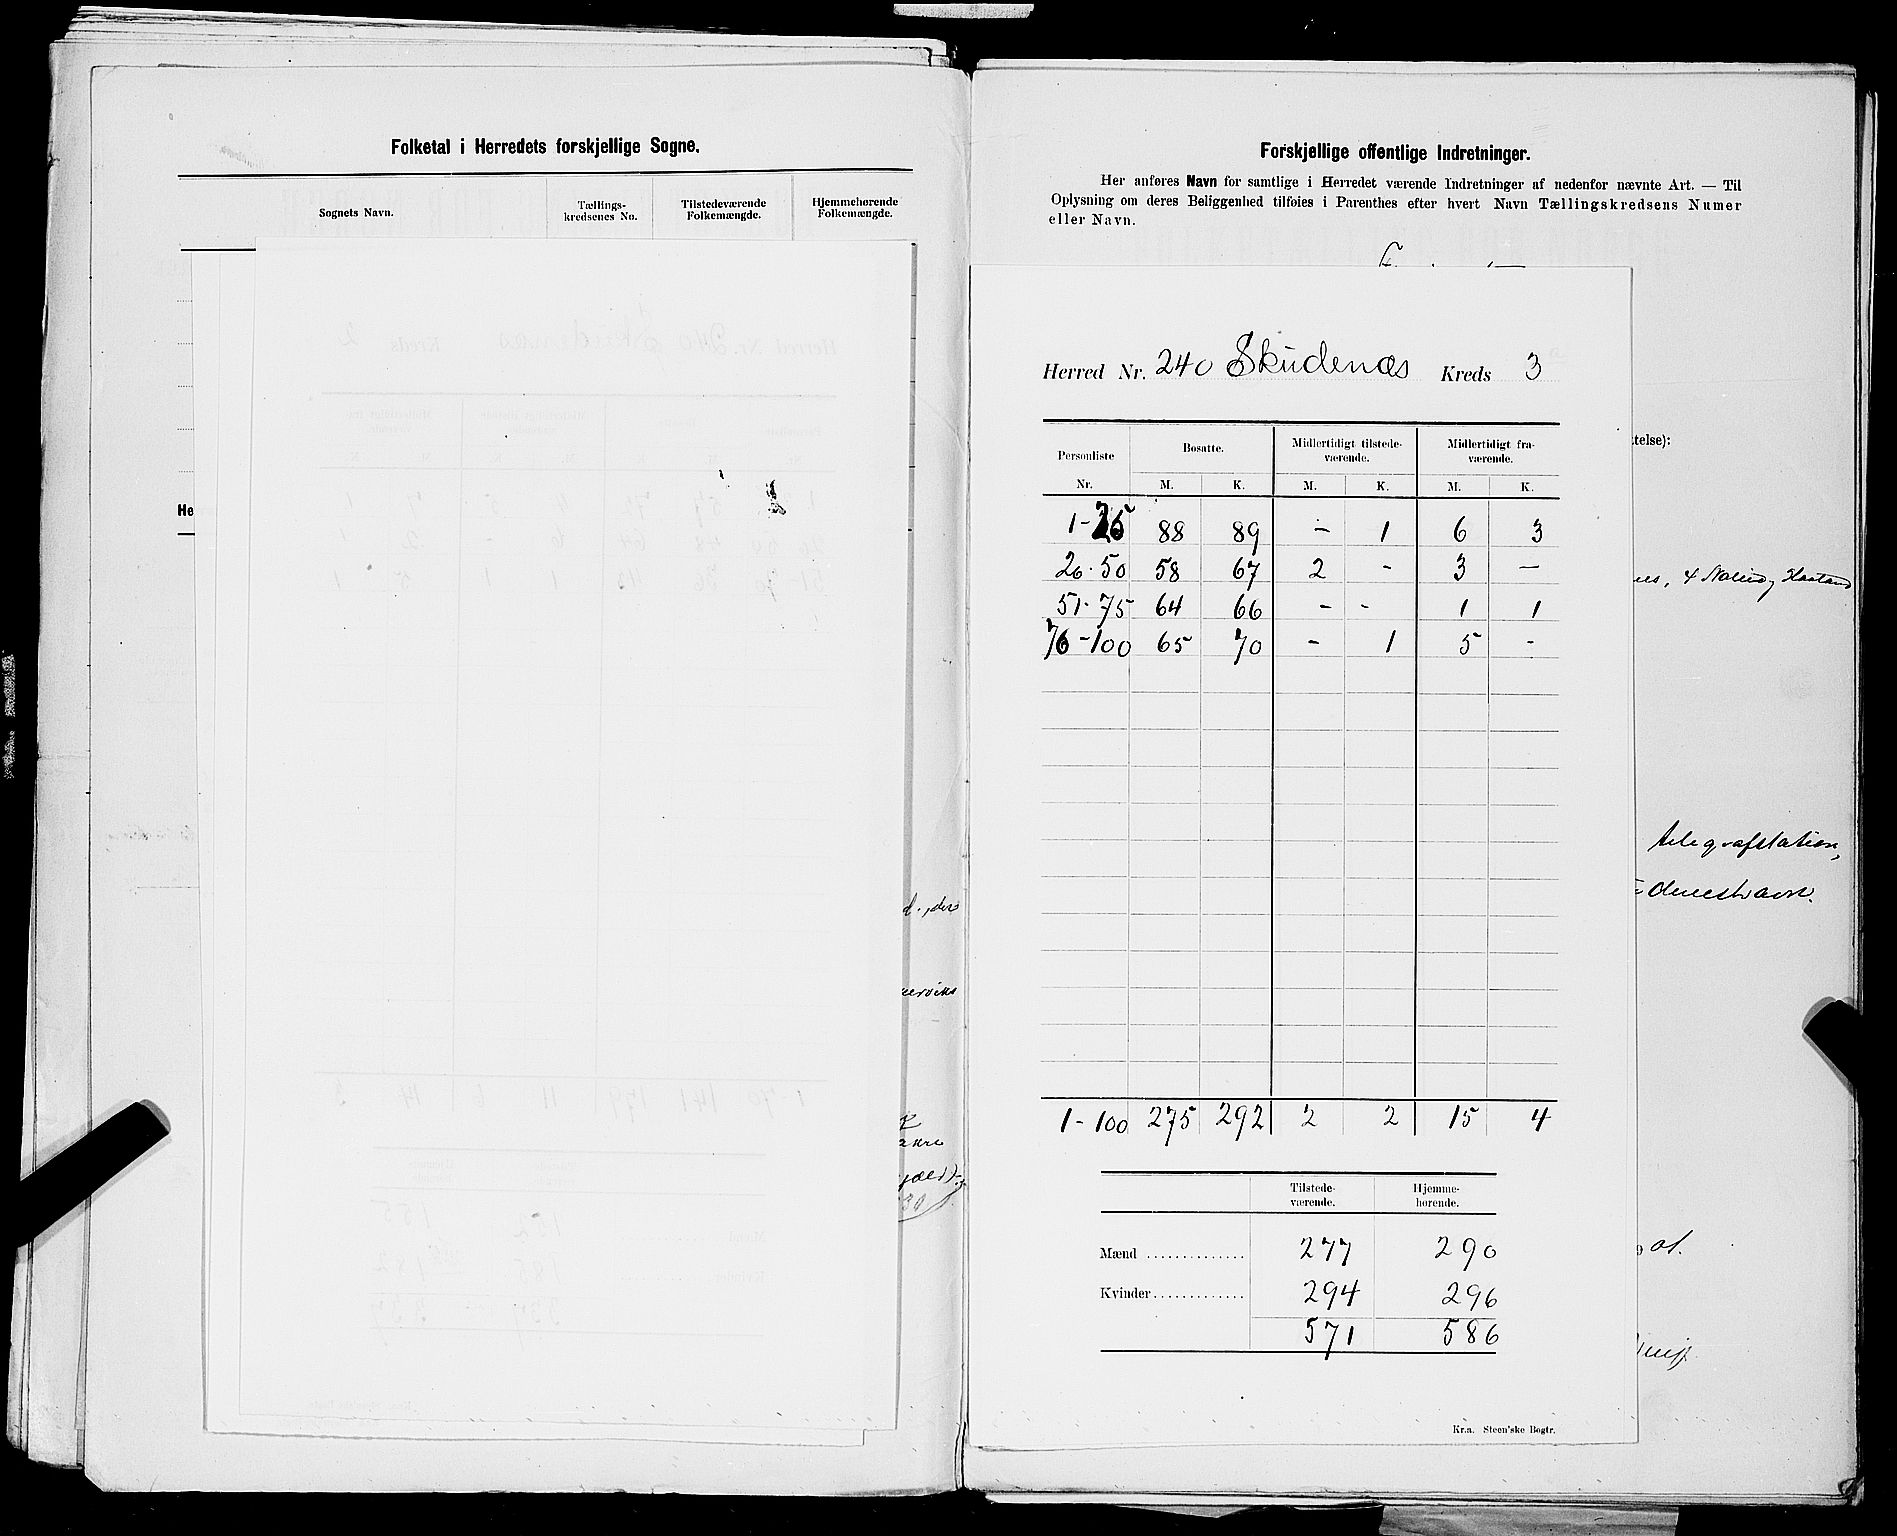 Folketal i Herredets forskjellige Sogne.
Sognets Navn. Tællings- kredsenes No. Tilstedeværende Folkemængde. Hjemmehørende Folkemængde.
He
Forskjellige offentlige Indretninger.
Her anføres Navn for samtlige i Herredet værende Indretninger af nedenfor nævnte Art. — Til
Oplysning om deres Beliggenhed tilføies i Parenthes efter hvert Navn Tællingskredsens Numer
eller Navn.
Herred Nr. 240 Skudenæs Kreds 3
Personliste Bosatte. Midlertidigt tilstede- værende. Midlertidigt fra- værende.
Nr. M. K. M. K. M. K.
1-25 88 89 - 1 6 3
26-50 58 67 2 - 3 -
51-75 64 66 - - 1 1
76-100 65 70 - 1 5 -
1-100 275 292 2 2 15 4
Tilstede- værende. Hjemme- hørende.
Mænd .............. 277 290
Kvinder............. 294 296
571 586
Kr.a. Steen'ske Bogtr.
telse):
telegrafstation,